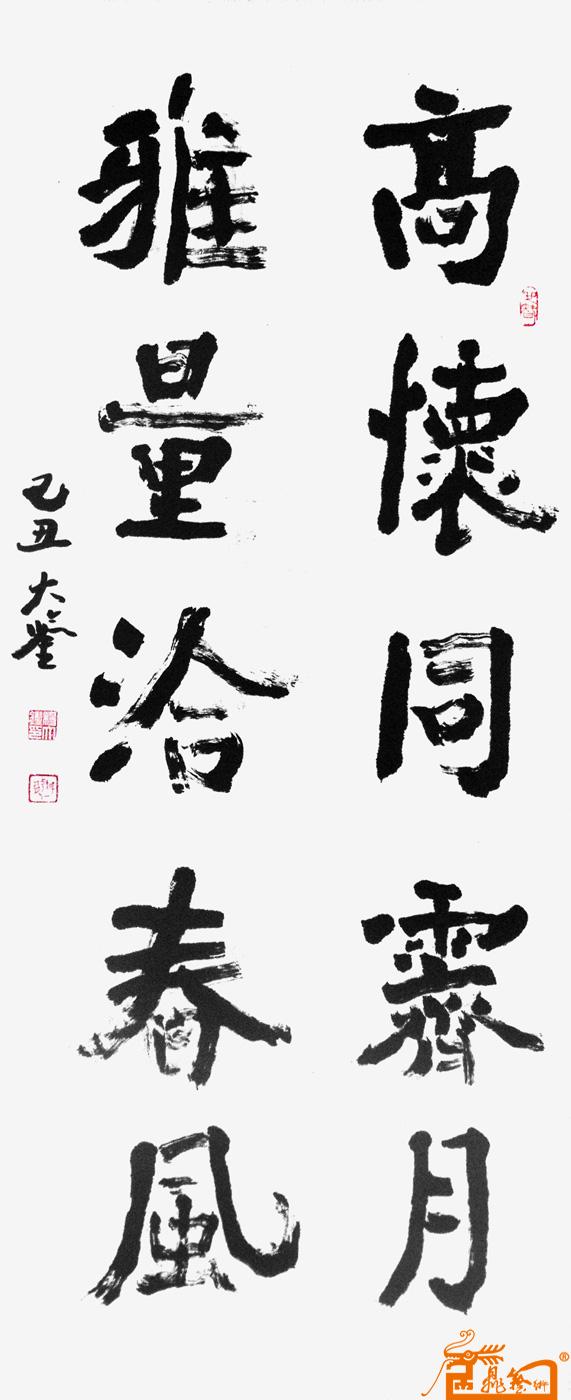 高懷同霽月
雅量洽春風
己丑 大鑒